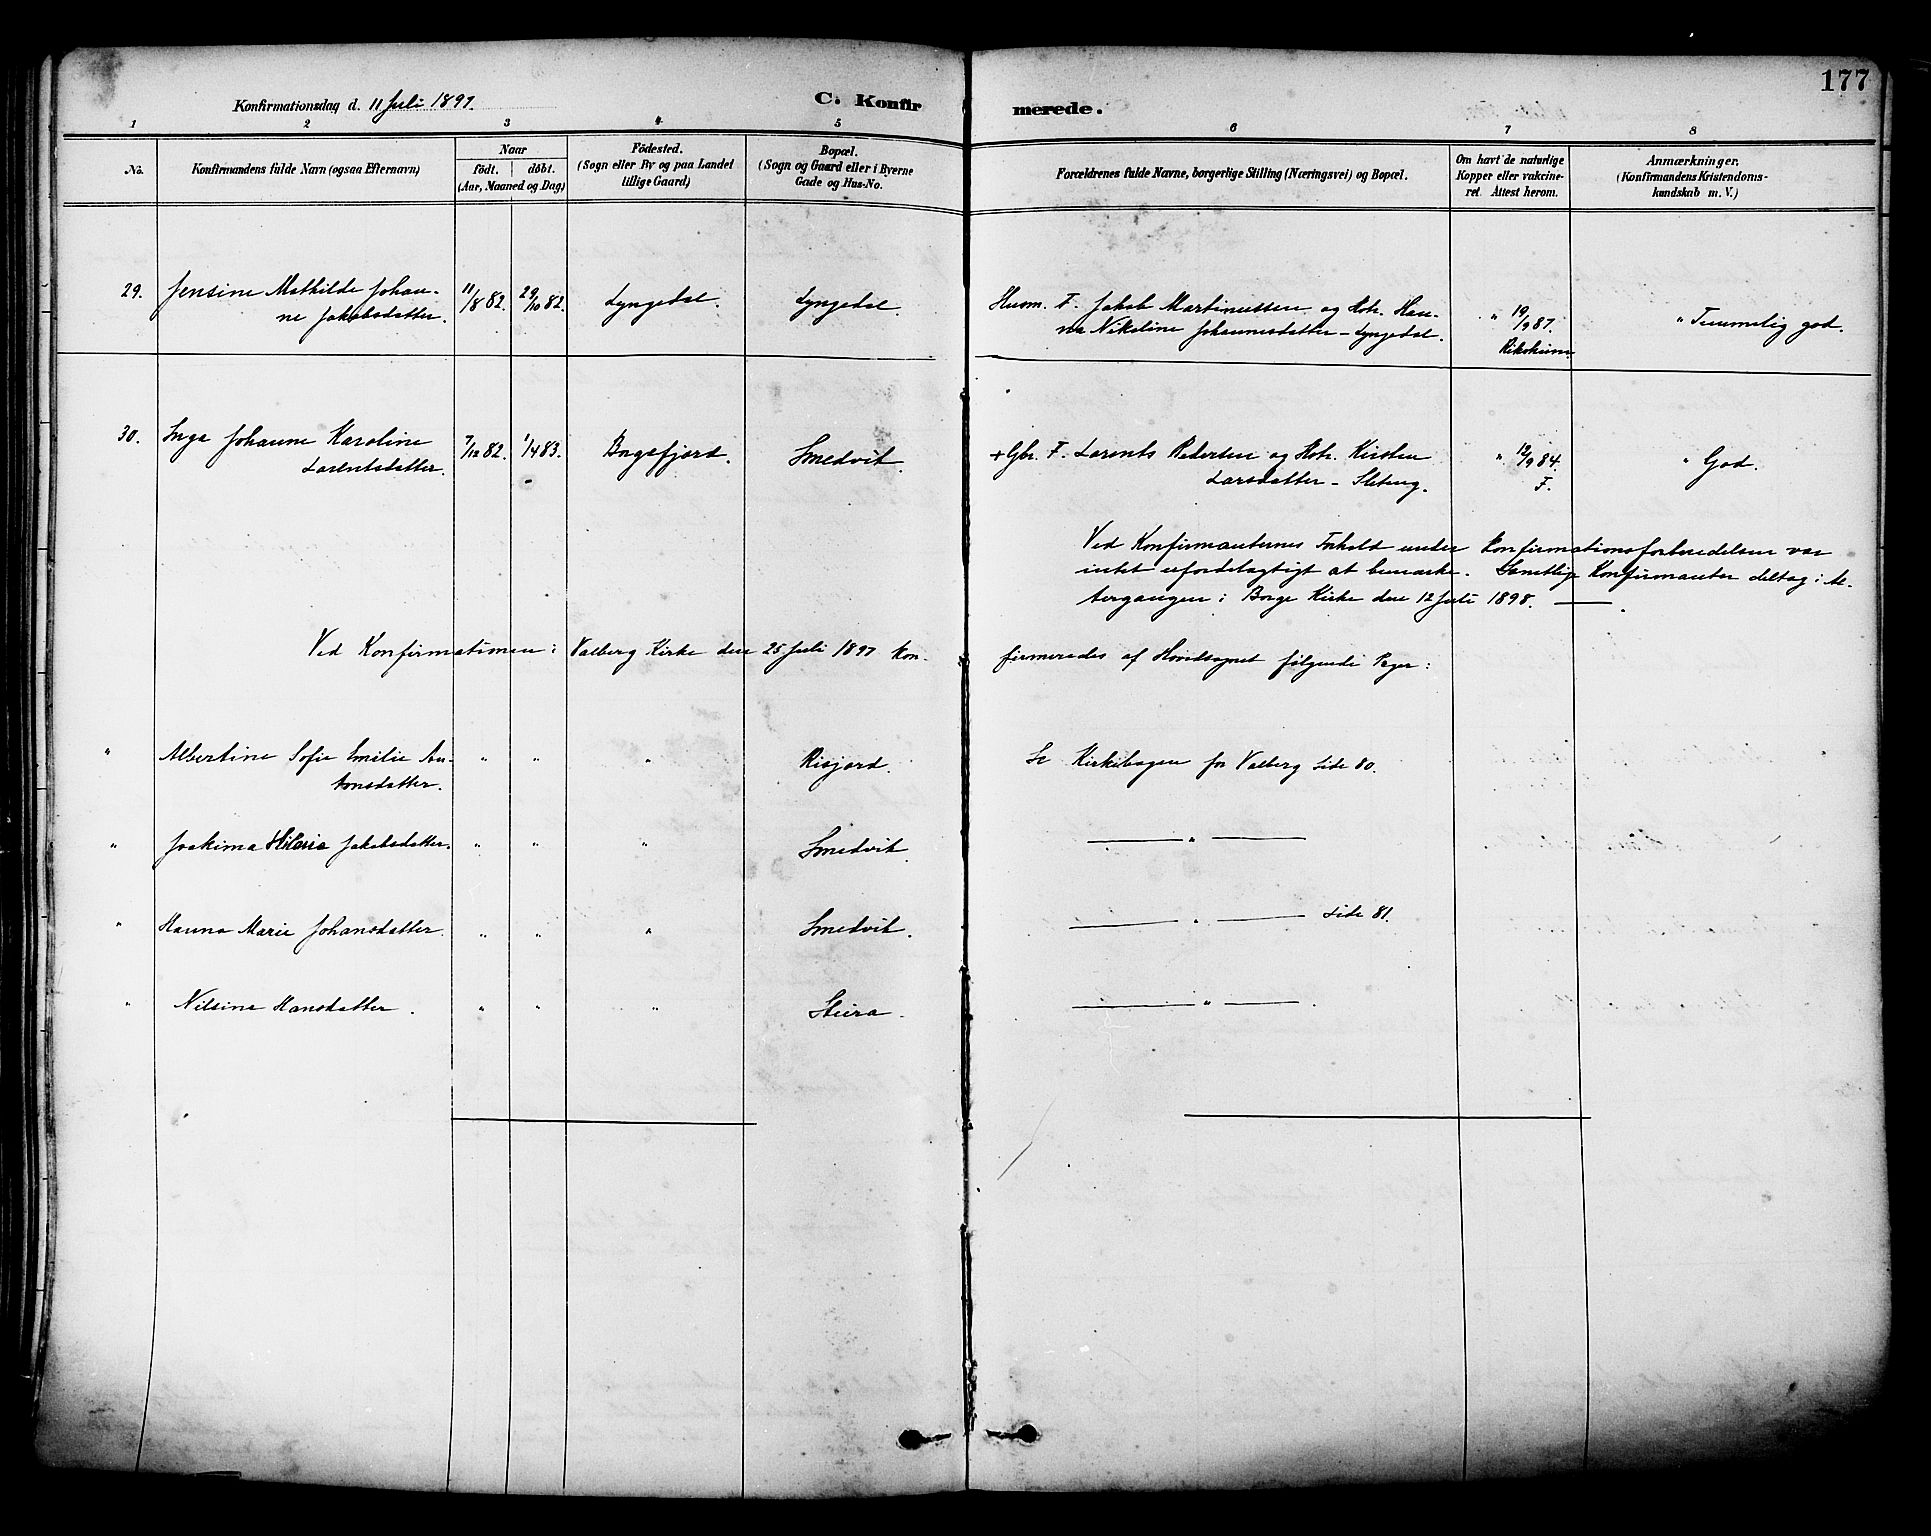 177
Konfirmationsdag d. 11 Juli 1897.
C. Konfirmerede.
1 2 3 4 5 6 7 8
No.
Konfirmandens fulde Navn (ogsaa Efternavn)
Naar
født. døbt.
(Aar, Maaned og Dag)
Födested.
(Sogn eller By og paa Landet
tillige Gaard)
Bopæl.
(Sogn og Gaard eller i Byerne
Gade og Hus-No.
Forældrenes fulde Navne, borgerlige Stilling (Næringsvei) og Bopæl.
Om havt de naturlige
Kopper eller vakcine-
ret. Attest herom.
Anmærkninger.
(Konfirmandens Kristendoms-
kundskab m. V.)
29. Jensine Mathilde Johan-
ne Jakobsdatter.
11/8 82. 29/10 82.
Lyngedal.
Lyngedal.
Husm. F. Jakob Martinussen og Hstr. Han-
na Nikoline Johannesdatter - Lyngedal.
" 19/9 87.
" Temmelig god.
30. Inga Johanne Karoline
Lorentsdatter.
7/12 82. 1/4 83.
Borgefjord.
Smedvik.
+ Gbr. F. Lorents Pedersen og Hstr. Kirsten
Larsdatter -
" 12/9 84.
F.
" God.
Ved Konfirmanternes Forhold under Konfirmationsforberedelsen var
intet ufordelagtigt at bemærke. Samtlige Konfirmanter deltog i Al-
tergangen i Borge Kirke den 12 Juli 1898.
Ved Konfirmationen i Valberg Kirke den 25 Juli 1897 kon-
firmeredes af Hovedsognet følgende Piger:
" Albertine Sofie Emilie An-
tonsdatter. " " "
Risjord.
Se Kirkebogen for Valberg Side 80.
" Joakima Hilaria Jakobsdatter. " " "
Smedvik.
— " —
" Hanna Marie Johansdatter. " " "
Smedvik.
— " — Side 81.
" Nilsine Hansdatter. " " "
Steira.
— " —.